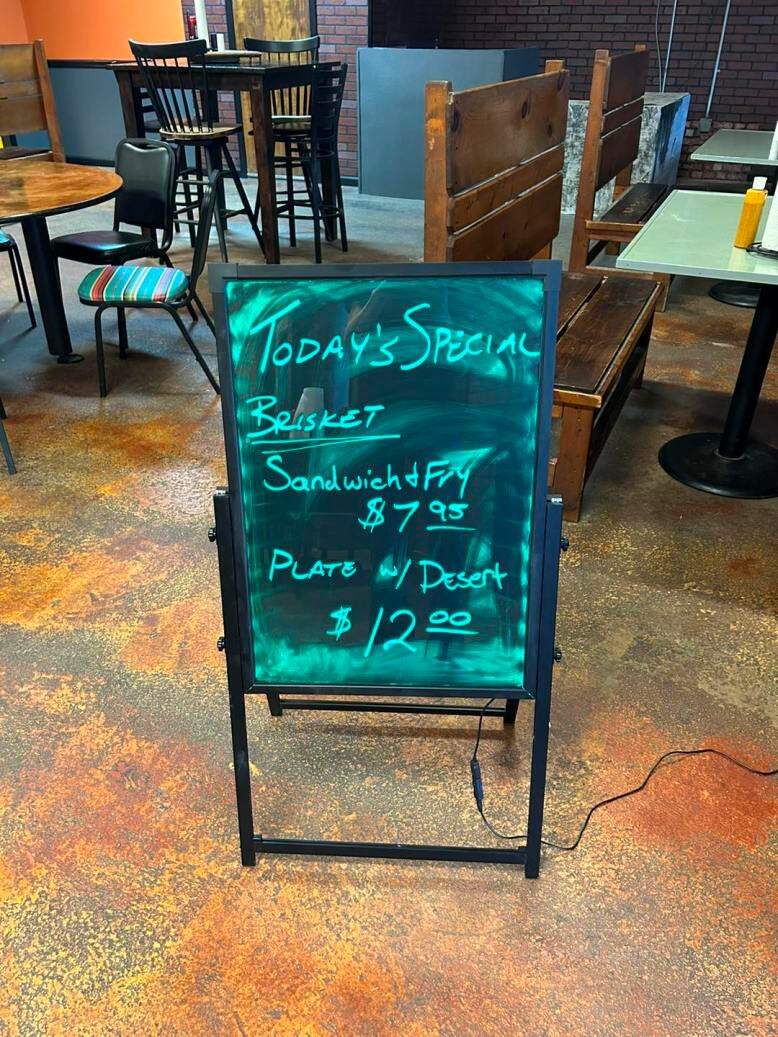 TODAY'S SPECIAL
BRISKET
Sandwich & Fry
$7 95
PLATE w/ Desert
$12 00